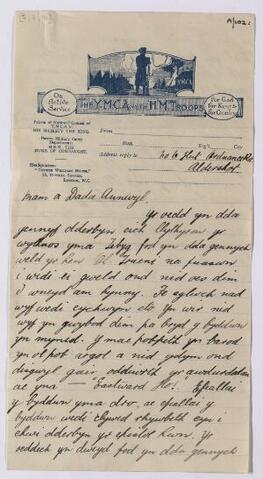 On
Active
Service
THE Y.M.C.A WITH H.M. TROOPS
For God
For King &
For Country
Patron of National Council of
Y.M.C.A.
HIS MAJESTY THE KING.
Patron Military Camp
Department
H.R.H. THE
DUKE OF CONNAUGHT.
From
Address reply to No 6 Hut Ordnance Rd
Aldershot
Headquarters:
LONDON, W.C.
Mam a Dada Annwyl,
Yr oedd yn dda
gennyf dderbyn eich llythyron yr
wythnos yma debyg fod yn dda gennych
weld yr hen
i wedi ei gweld ond nid oes dim
i wneyd am hynny. Te
wyf wedi cychwyn eto Yn wir nid
wyf yn gwybod dim pa bryd y byddwn
yn myned. Y mae pobpeth yn barod
yn ol pob argol a nid ydym ond
disgwyl gair oddiwrth yr awdurdodau
ac yna — "Eastward Ho!". Efallai
y byddwn yma dro, ac efallai y
byddwn wedi clywed rhywbeth cyn i
chwi dderbyn yr epistol hwn. Yr
oeddech yn dweyd fod yn dda gennych